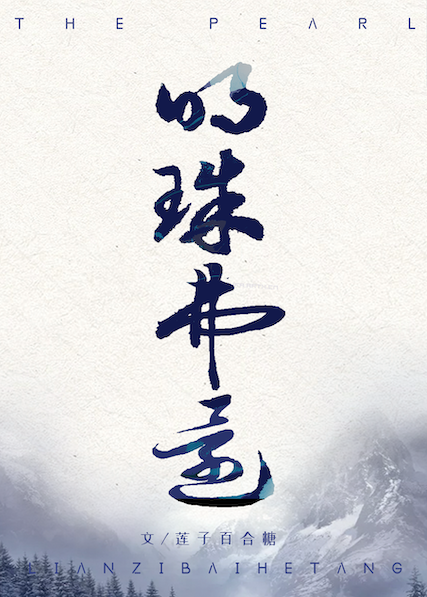 THE PEARL
明珠弗还
文/莲子百合糖
LIANZIBAIHETANG